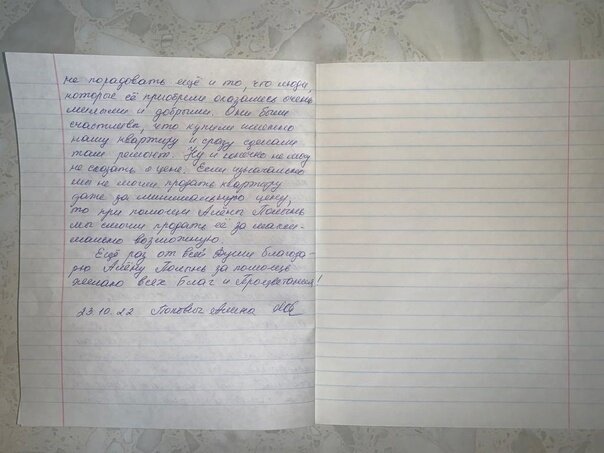 не порадовать ещё и то, что люди,
которые её приобрели оказались очень
милыми и добрыми. Они были
счастливы, что купили именно
нашу квартиру и сразу сделали
там ремонт. Ну и конечно не могу
не сказать о цене. Если изначально
мы не могли продать квартиру
даже за минимальную цену,
то при помощи Алёны Полынь
мы смогли продать её за макси-
мально возможную.
Ещё раз от всей Души Благода-
рю Алёну Полынь за помощь
желаю всех Благ и Процветания!
23.10.22 Попович Алина